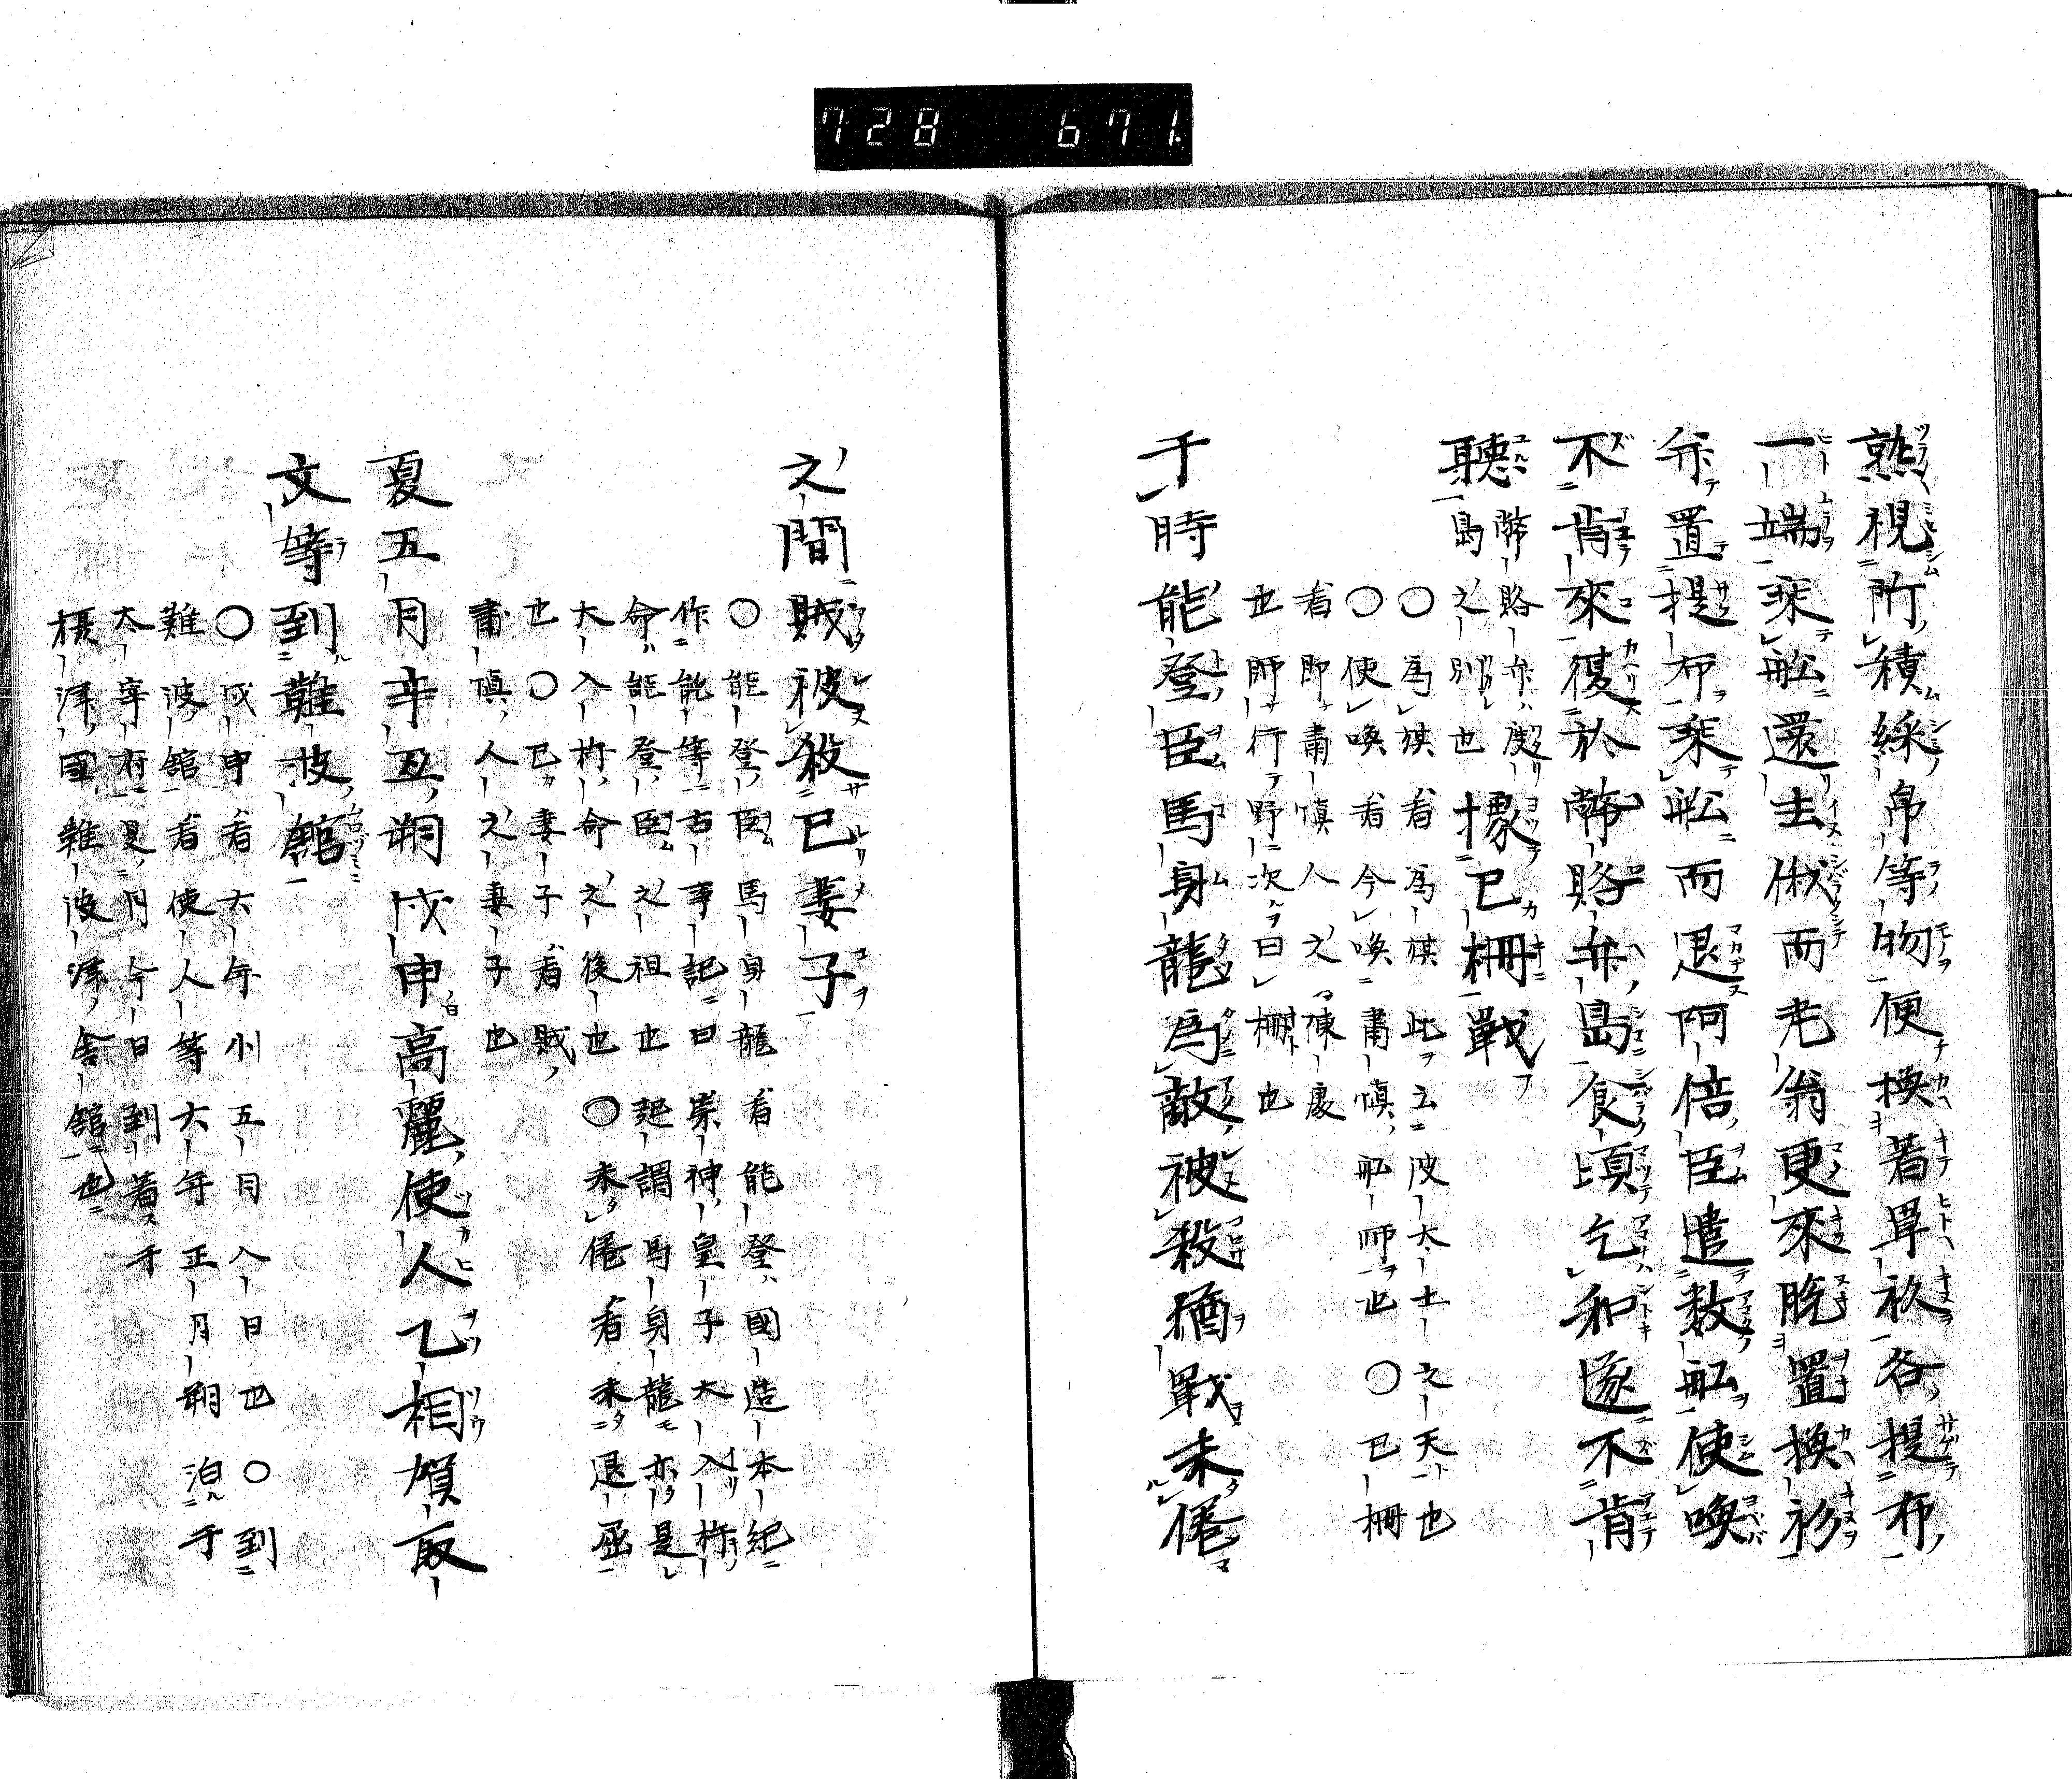 728 671
熟視所積綵帛等物便換着單衫各提布
一端乘舩還去俄而老翁更來脱置換衫
幷置提布乘舩而退阿倍臣遣数舩使喚
不肯來復於幣賂弁島食頃乞和遂不肯
聽幣賂弁度
島之別也據己柵戰
〇為祺看為祺此云波太士之天也
〇使喚看今喚肅慎舩師也〇己柵
看即肅慎人之陳處
也師行野次曰柵也
于時能登臣馬身龍為敵被殺猶戰未倦
之間賊被殺己妻子
〇能登臣馬身龍看能登國造本紀
作能等古事記曰崇神皇子大入杵
命能登臣之祖也起謂馬身龍亦是
大入杵命之後也〇未倦看未退屈
也〇己妻子看賊
肅慎人之妻子也
夏五月辛丑朔戊申高麗使人乙相賀取
文等到難波館
〇戊申看大年小五月八日也〇到
難波館看使人等六年正月朔泊于
太宰府是月今日到着于
攝津國難波津舎館也